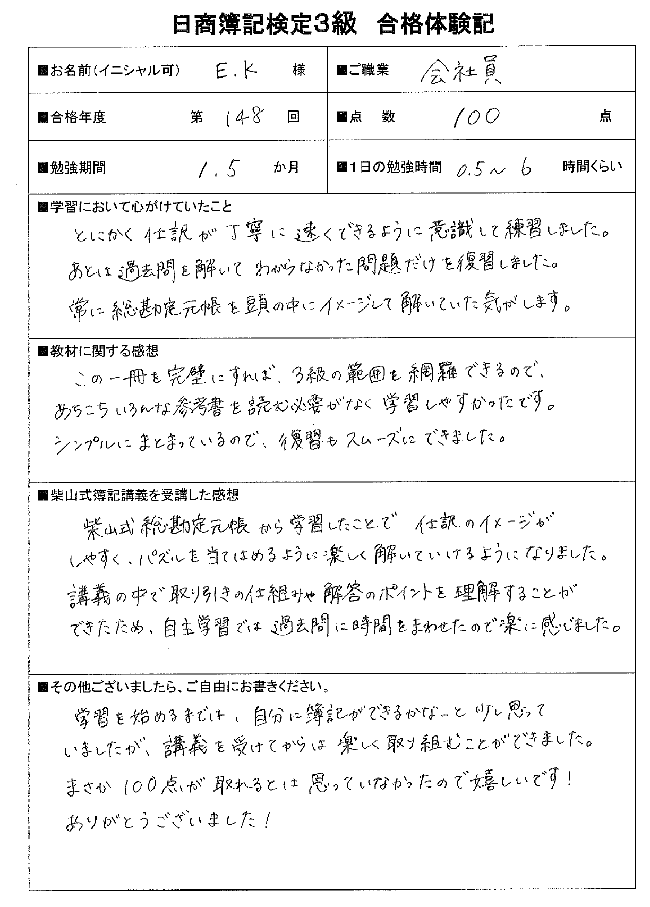 日商簿記検定3級 合格体験記
■お名前(イニシャル可) E.K 様 ■ご職業 会社員
■合格年度 第 148 回 ■点 数 100 点
■勉強期間 1.5 か月 ■1日の勉強時間 0.5~6 時間くらい
■学習において心がけていたこと
とにかく仕訳が丁寧に速くできるように意識して練習しました。
あとは過去問を解いてわからなかった問題だけを復習しました。
常に総勘定元帳を頭の中にイメージして解いていた気がします。
■教材に関する感想
この一冊を完璧にすれば、3級の範囲を網羅できるので、
あちこちいろんな参考書を読む必要がなく学習しやすかったです。
シンプルにまとまっているので、復習もスムーズにできました。
■柴山式簿記講義を受講した感想
柴山式総勘定元帳から学習したことで仕訳のイメージが
しやすく、パズルを当てはめるように楽しく解いていけるようになりました。
講義の中で取り引きの仕組みや解答のポイントを理解することが
できたため、自主学習では過去問に時間をまわせたので楽に感じました。
■その他ございましたら、ご自由にお書きください。
学習を始めるまでは、自分に簿記ができるかな…と少し思って
いましたが、講義を受けてからは楽しく取り組むことができました。
まさか100点が取れるとは思っていなかったので嬉しいです!
ありがとうございました!